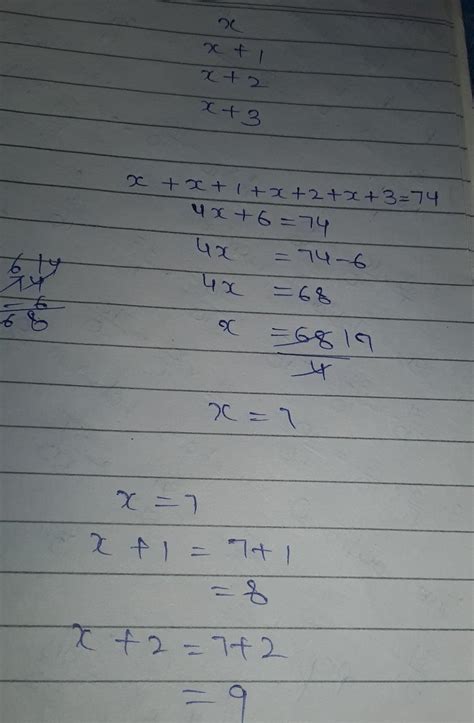 x
x+1
x+2
x+3
x+x+1+x+2+x+3=74
4x+6=74
4x =74-6
4x =68
x =68 17
4
6 14
74
- 6
68
x=7
x=7
x+1=7+1
=8
x+2=7+2
=9